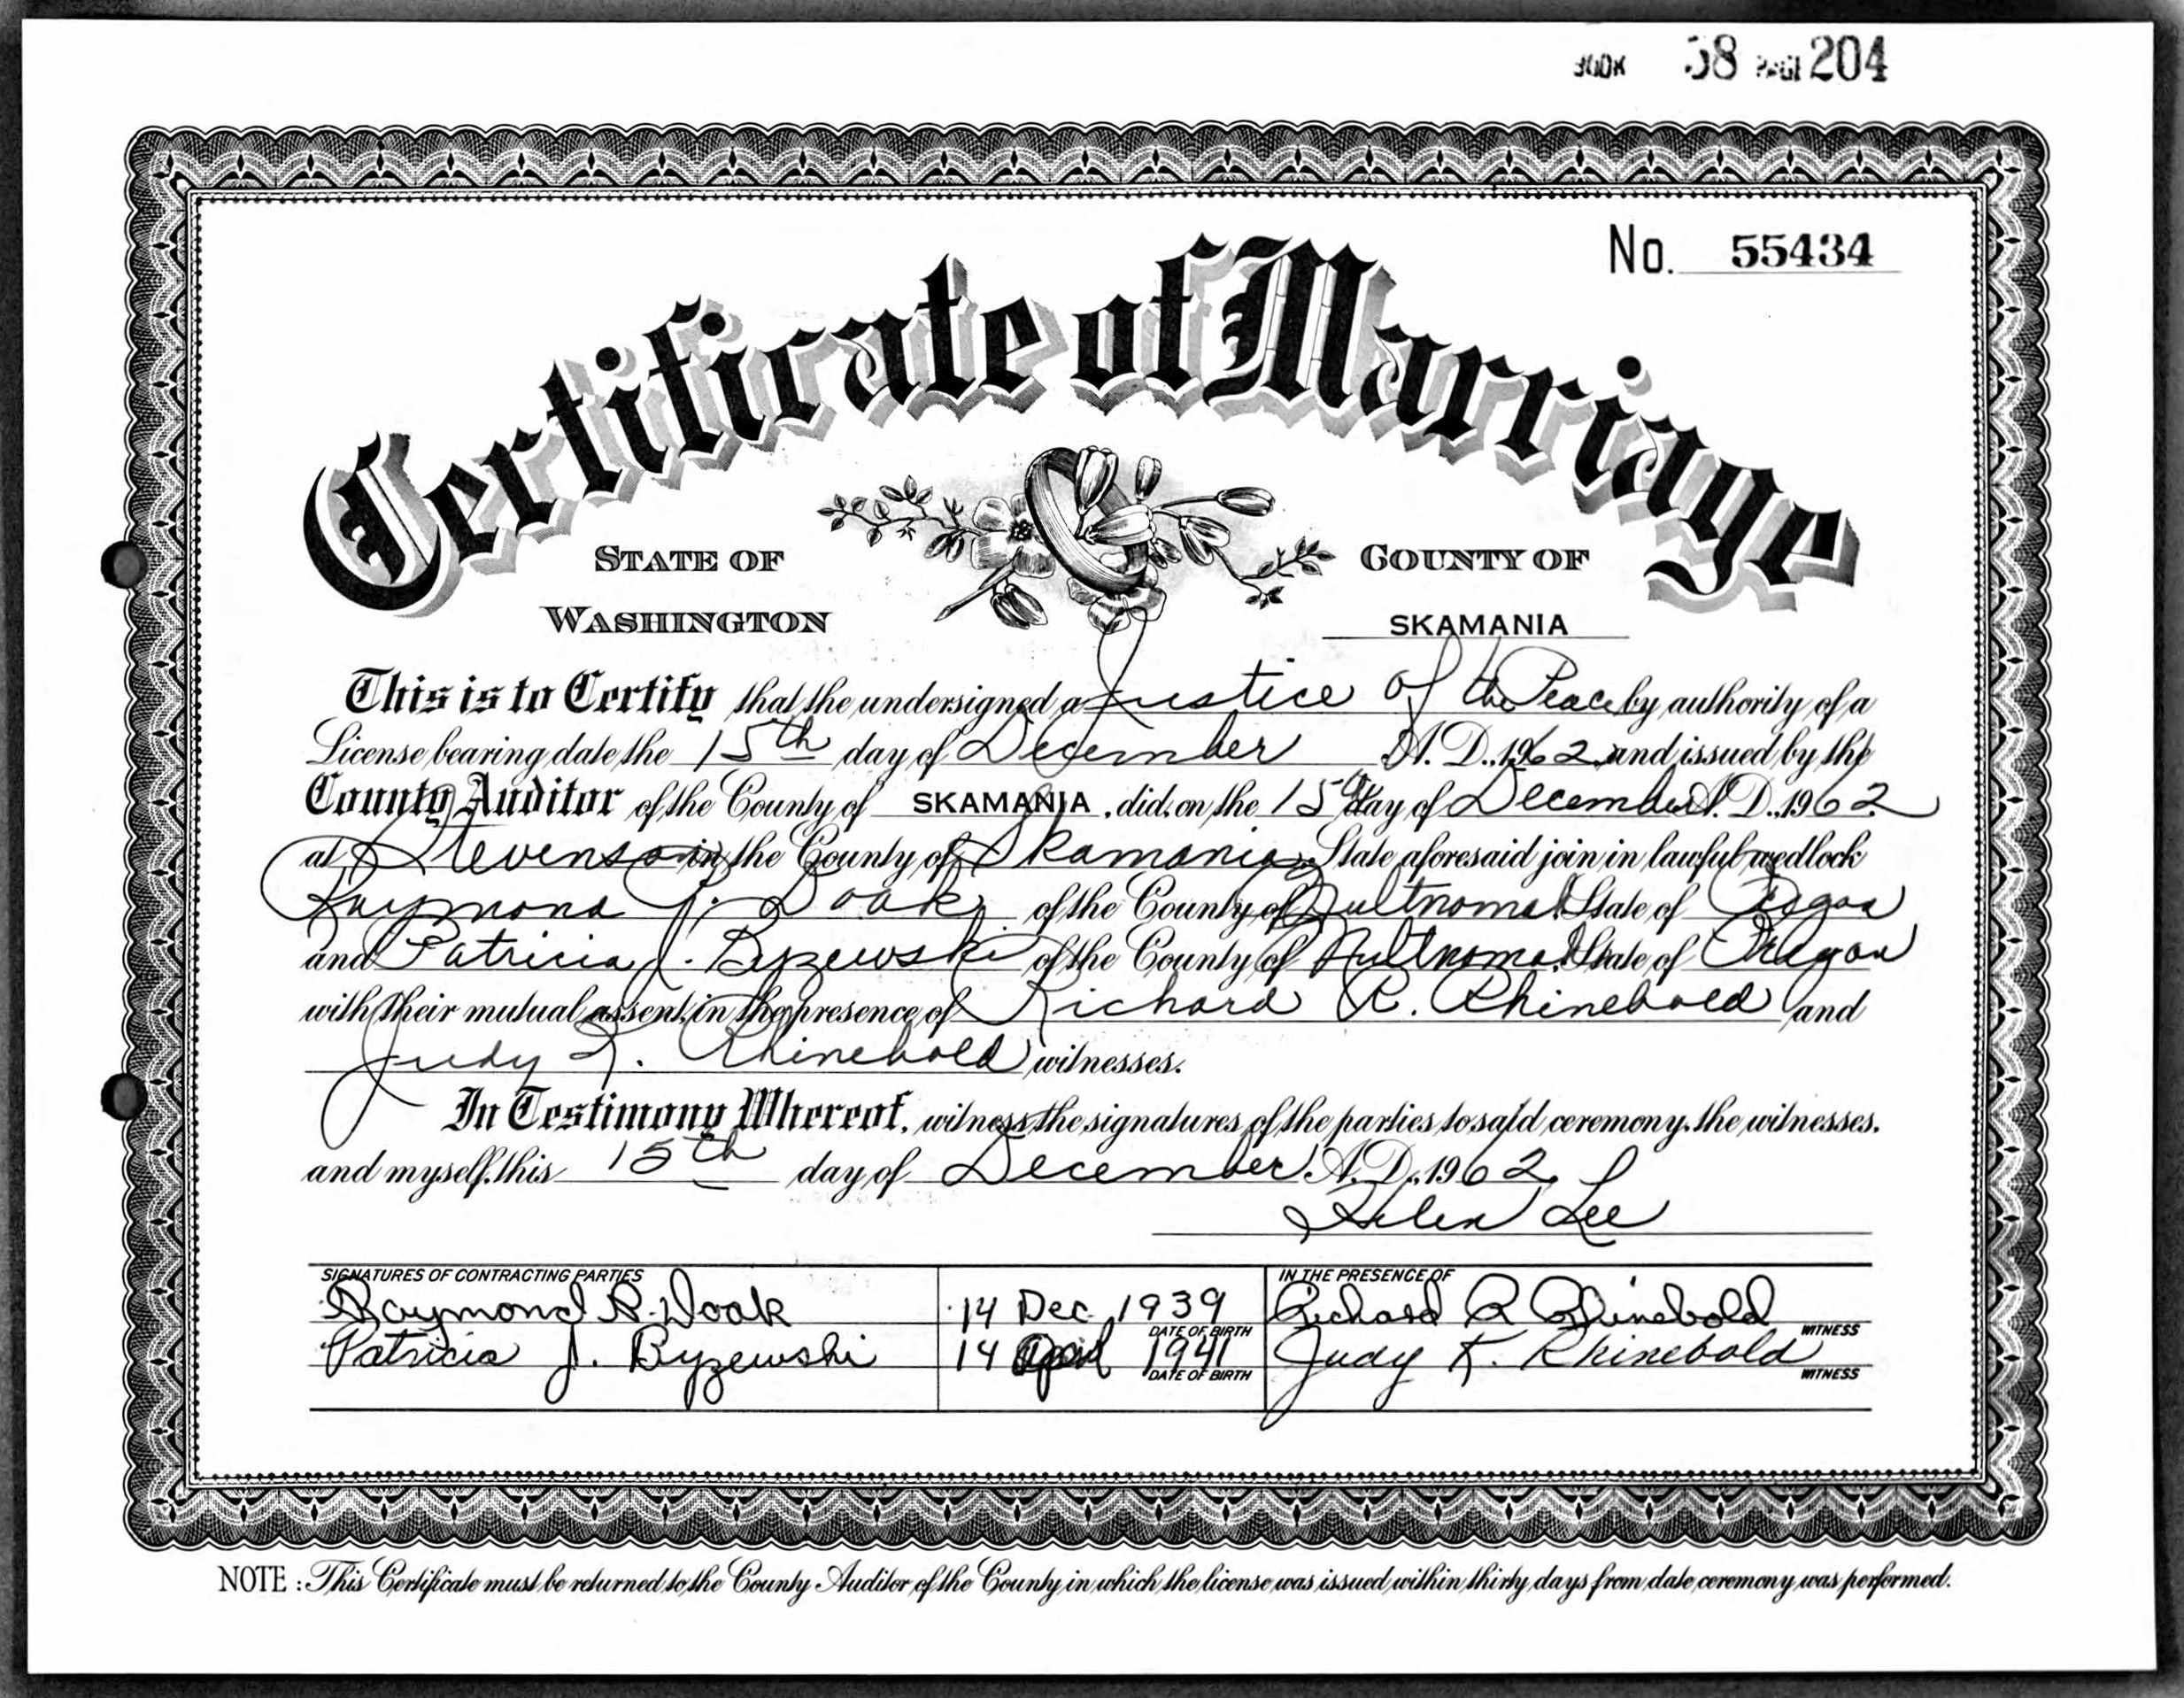 BOOK 58 PAGE 204
No. 55434
Certificate of Marriage
STATE OF WASHINGTON
COUNTY OF SKAMANIA
This is to Certify that the undersigned a Justice of the Peace by authority of a
License bearing date the 15th day of December A.D., 1962 and issued by the
County Auditor of the County of SKAMANIA, did, on the 15th day of December A.D., 1962
at Stevenson in the County of Skamania State aforesaid join in lawful wedlock
Raymond Doak of the County of Multnomah State of Oregon
and Patricia J. Byzewski of the County of Multnomah State of Oregon
with their mutual assent, in the presence of Richard R. Rhinebold and
Judy K. Rhinebold witnesses.
In Testimony Whereof, witness the signatures of the parties to said ceremony, the witnesses,
and myself, this 15th day of December A.D., 1962
Helen Lee
SIGNATURES OF CONTRACTING PARTIES
IN THE PRESENCE OF
Raymond R. Doak 14 Dec. 1939 Richard R Rhinebold
DATE OF BIRTH WITNESS
Patricia J. Byzewski 14 April 1941 Judy K. Rhinebold
DATE OF BIRTH WITNESS
NOTE: This Certificate must be returned to the County Auditor of the County in which the license was issued within thirty days from date ceremony was performed.